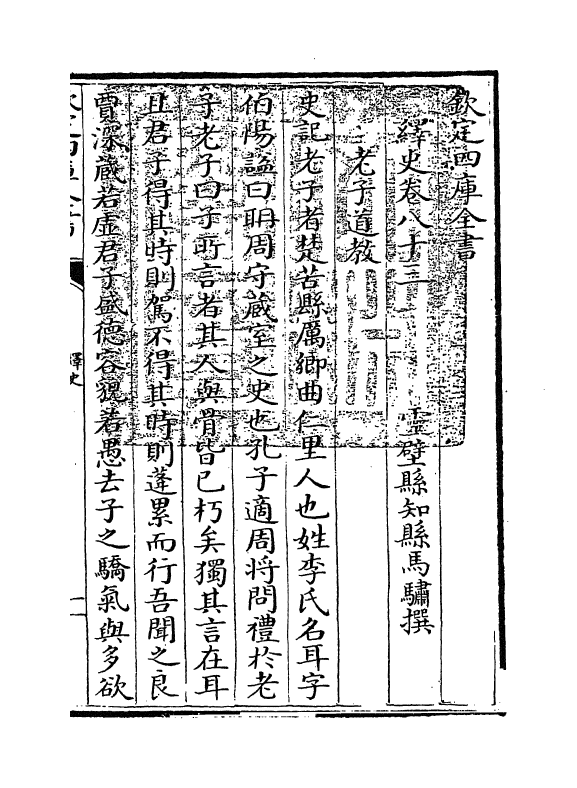 欽定四庫全書
繹史卷八十三
靈壁縣知縣馬驌撰
老子道教
史記老子者楚苦縣厲鄉曲仁里人也姓李氏名耳字
伯陽謚曰耼周守蔵室之史也孔子適周将問禮於老
子老子曰子所言者其人與骨皆已朽矣獨其言在耳
且君子得其時則駕不得其時則蓬累而行吾聞之良
賈深蔵若虚君子盛德容貌若愚去子之驕氣與多欲
繹史